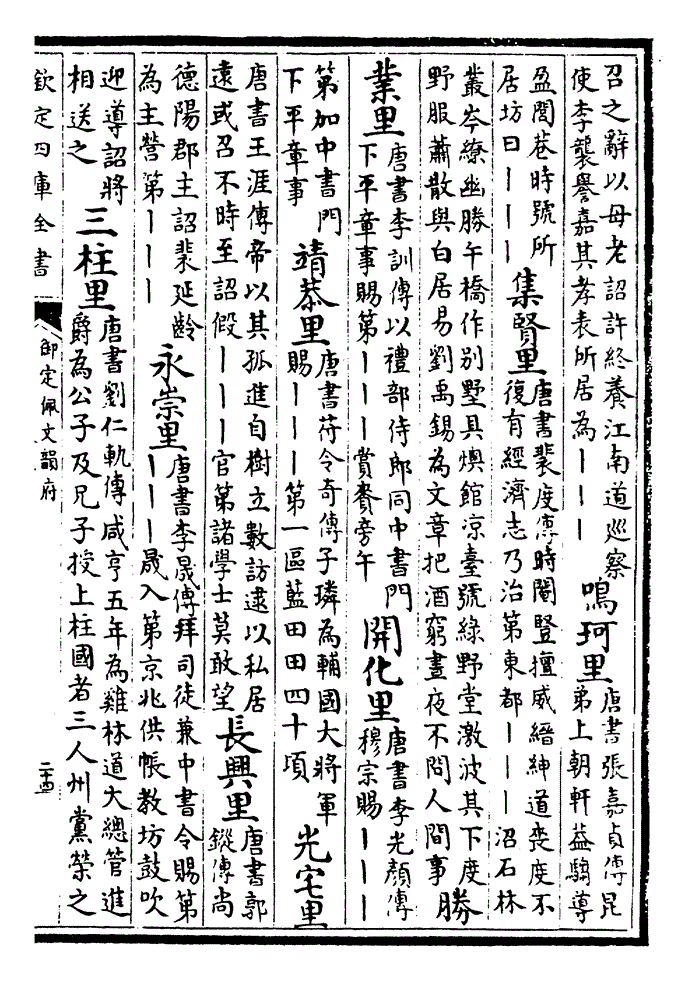 召之辭以母老詔許終養江南道巡察
使李襲譽嘉其孝表所居為丨丨丨
鳴珂里
唐書張嘉貞傳昆
弟上朝軒葢騶導
盈閭巷時號所
居坊曰丨丨丨
集賢里
唐書裴度傳時閹豎擅威縉紳道喪度不
復有經濟志乃治第東都丨丨丨沼石林
叢岑繚幽勝午橋作别墅具燠館凉臺號綠野堂激波其下度
野服蕭散與白居易劉禹錫為文章把酒窮晝夜不問人間事
勝
業里
唐書李訓傳以禮部侍郎同中書門
下平章事賜第丨丨丨賞賚旁午
開化里
唐書李光顔傳
穆宗賜丨丨丨
第加中書門
下平章事
靖恭里
唐書苻令奇傳子璘為輔國大將軍
賜丨丨丨第一區藍田田四十頃
光宅里
唐書王涯傳帝以其孤進自樹立數訪逮以私居
遠或召不時至詔假丨丨丨官第諸學士莫敢望
長興里
唐書郭
鏦傳尚
德陽郡主詔裴延齡
為主營第丨丨丨
永崇里
唐書李晟傳拜司徒兼中書令賜第
丨丨丨晟入第京兆供帳教坊鼓吹
迎導詔將
相送之
三柱里
唐書劉仁軌傳咸亨五年為雞林道大總管進
爵為公子及兄子授上柱國者三人州黨榮之
欽定四庫全書
御定佩文韻府
二十四